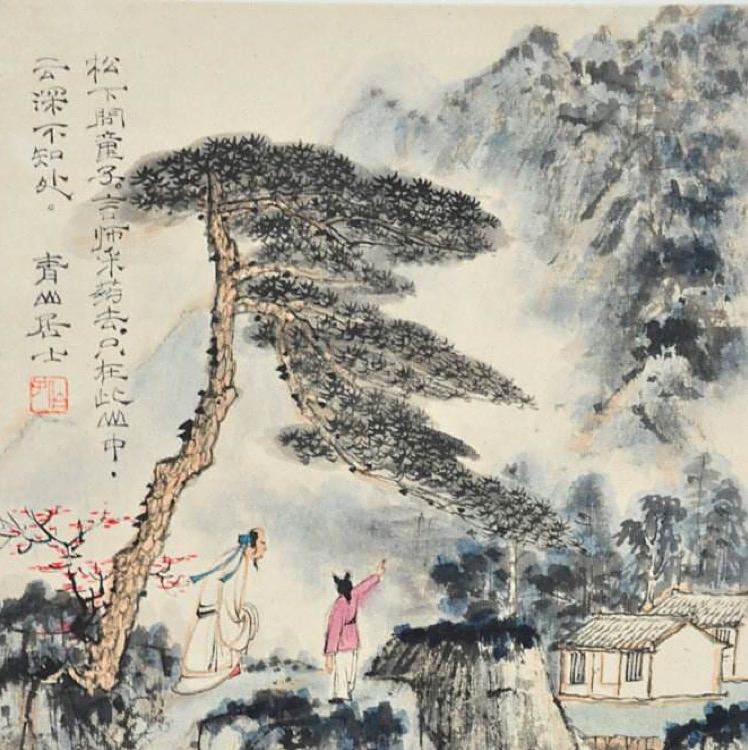 松下問童子。言师采药去。只在此山中.
云深不知处。 青山居士